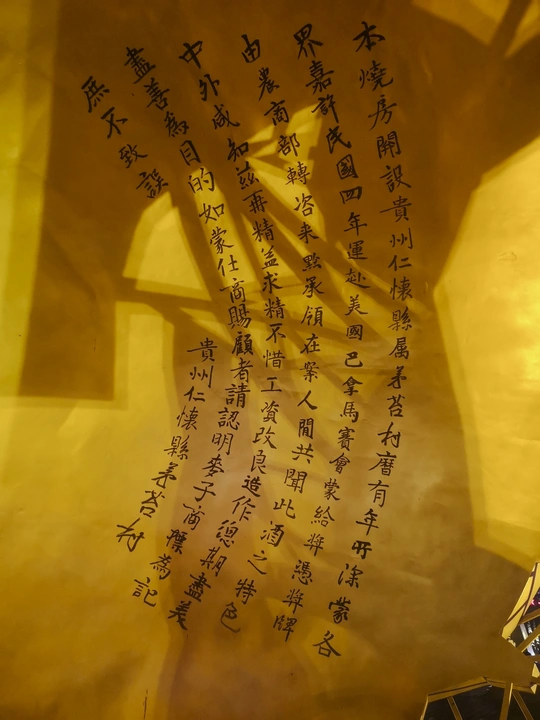 本燒房開設貴州仁懷縣属茅苔村曆有年所深蒙各
界嘉許民國四年運赴美國巴拿馬賽會蒙給奬憑奬牌
由農商部轉咨来黔承領在案人間共聞此酒之特色
中外咸知茲再精益求精不惜工資改良造作總期盡美
盡善為目的如蒙仕商賜顧者請認明麥子商標為記
庶不致誤
貴州仁懷縣茅苔村